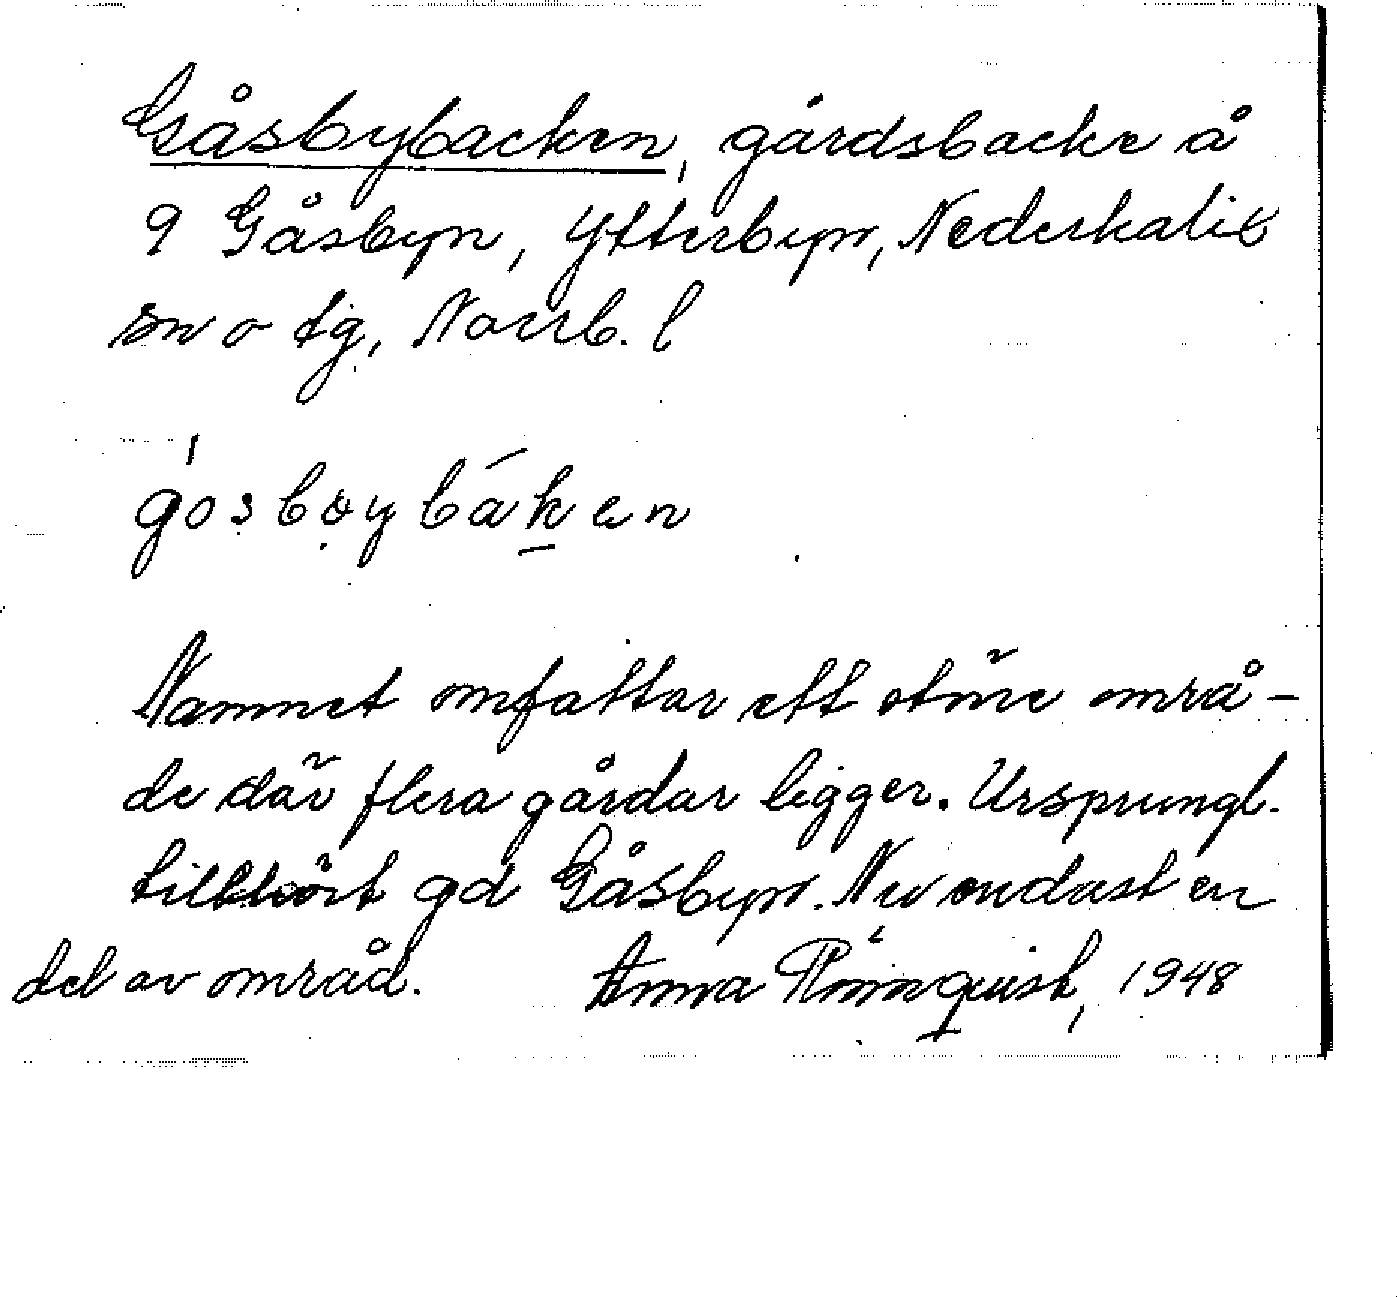 Gåsbybacken, gårdsbacke å
9 Gåsbyn, Ytterbyn, Nederkalix
sn o tg, Norrb. l
gosbøybáken
Namnet omfattar ett större områ-
de där flera gårdar ligger. Ursprungl.
tillhört gd Gåsbyn. Nu endast en
del av områd. Anna Rönnquist, 1948